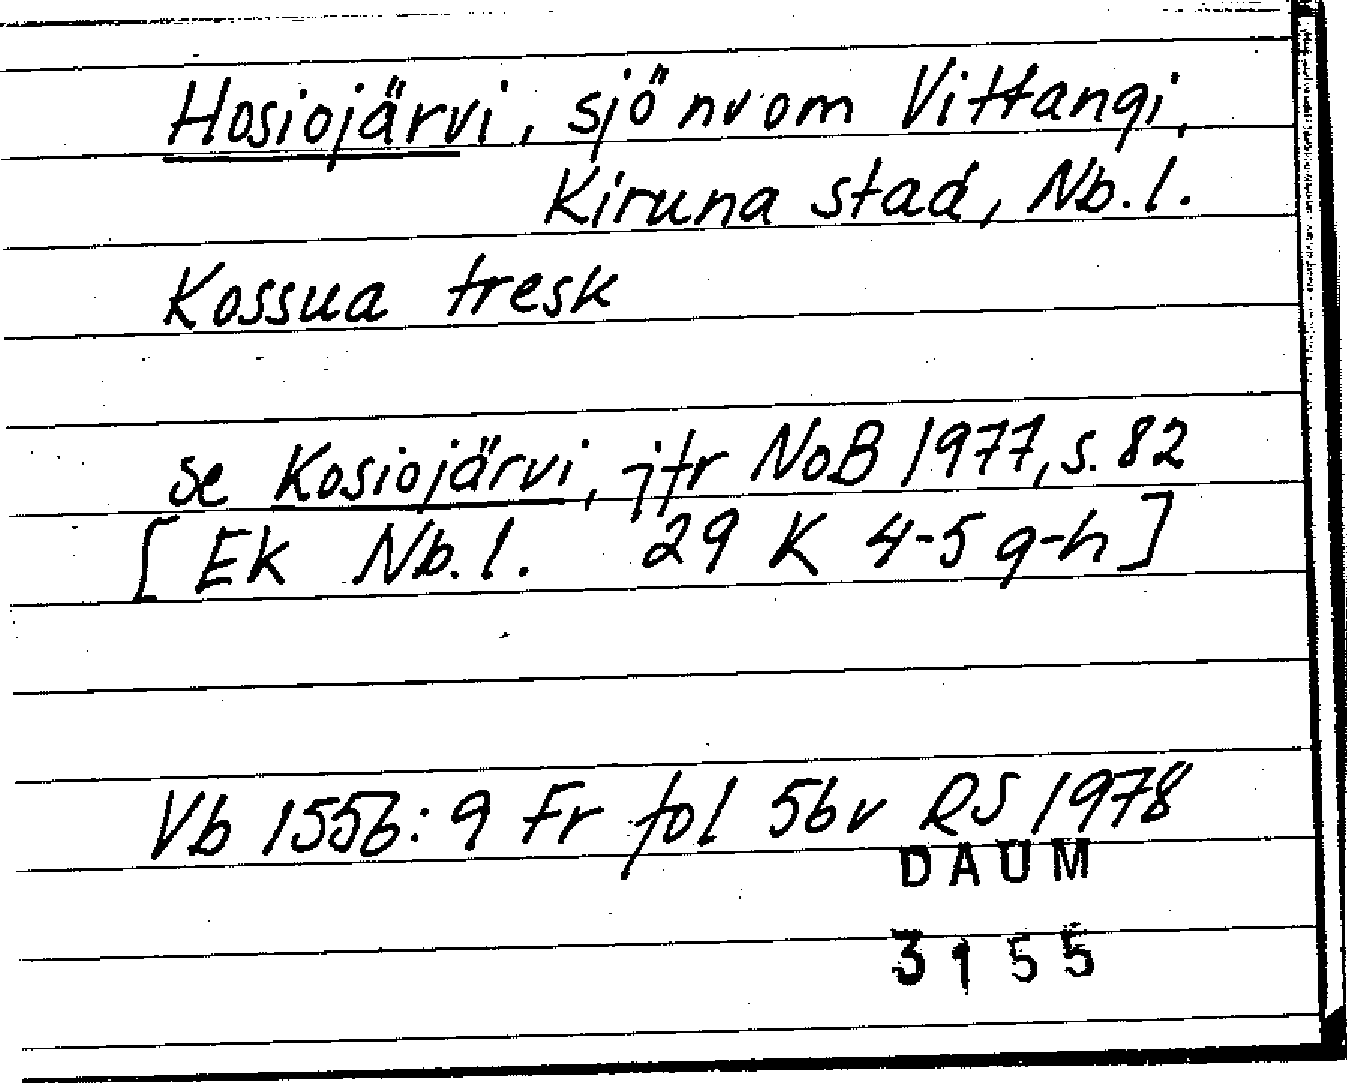 Hosiojärvi, sjö nv om Vittangi,
Kiruna stad, Nb.l.
Kossua tresk
se Kosiojärvi, jfr NoB 1977, s. 82
[EK Nb.l. 29 K 4-5 g-h]
Vb 1556:9 Fr fol 56v RS 1978
DAUM
3155